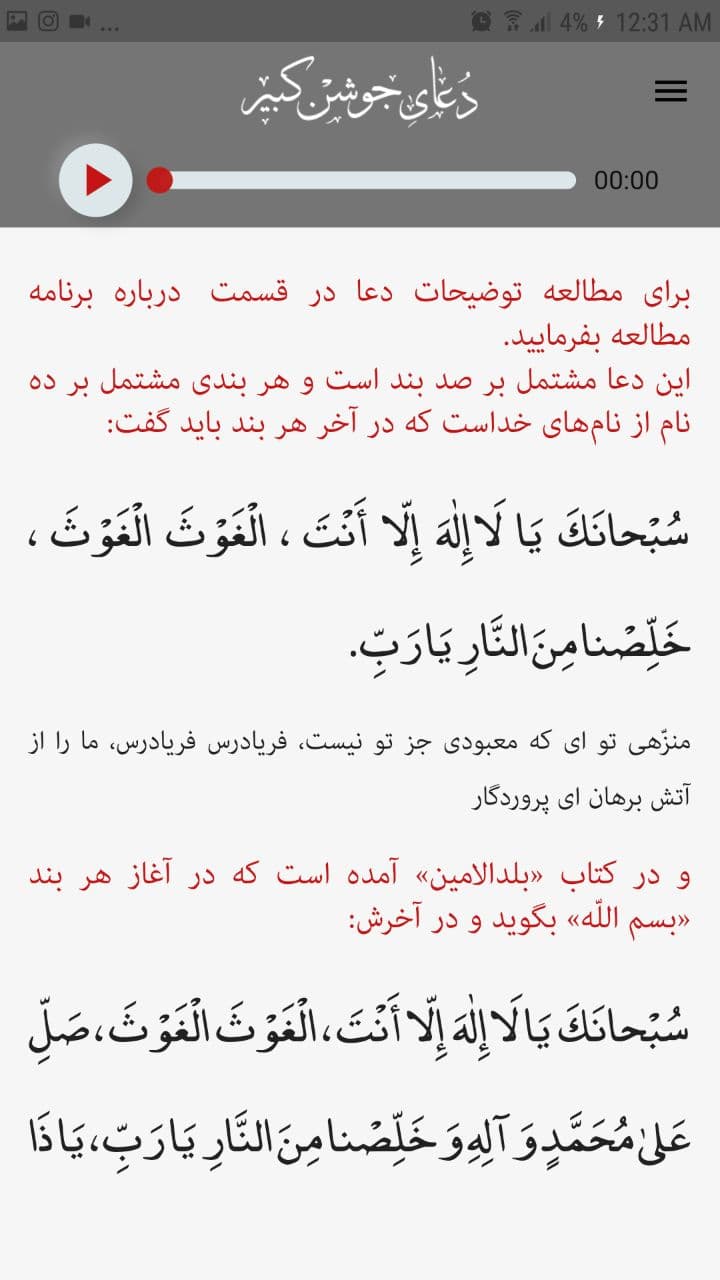 ... 4% 12:31 AM
دُعایِ جوشن کبیر
00:00
برای مطالعه توضیحات دعا در قسمت درباره برنامه
مطالعه بفرمایید.
این دعا مشتمل بر صد بند است و هر بندی مشتمل بر ده
نام از نام‌های خداست که در آخر هر بند باید گفت:
سُبْحانَكَ يَا لَاإِلٰهَ إِلّا أَنْتَ ، الْغَوْثَ الْغَوْثَ ،
خَلِّصْنا مِنَ النَّارِ يَا رَبِّ.
منزّهی تو ای که معبودی جز تو نیست، فریادرس فریادرس، ما را از
آتش برهان ای پروردگار
و در کتاب «بلدالامین» آمده است که در آغاز هر بند
«بسم اللّه» بگوید و در آخرش:
سُبْحانَكَ يَا لَا إِلٰهَ إِلّا أَنْتَ، الْغَوْثَ الْغَوْثَ، صَلِّ
عَلىٰ مُحَمَّدٍ وَ آلِهِ وَ خَلِّصْنا مِنَ النَّارِ يَا رَبِّ، يَا ذَا